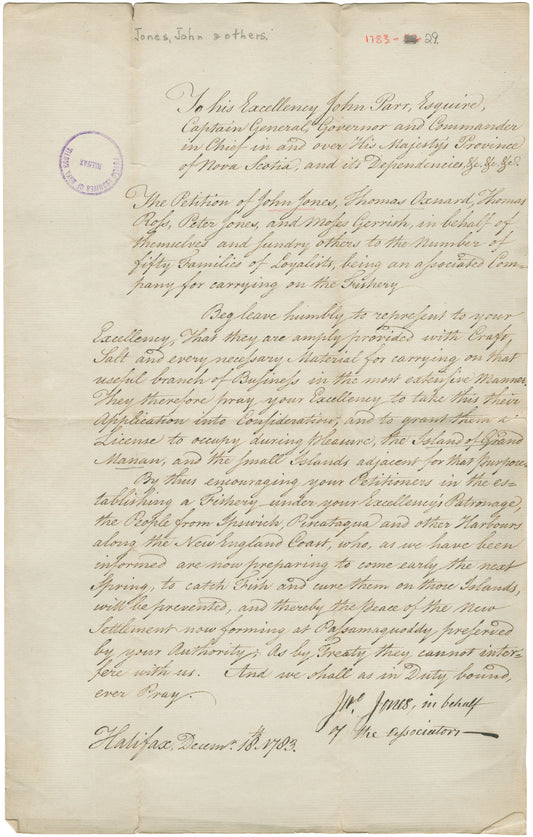 Jones, John & others.
1783 - 29.
PUBLIC ARCHIVES OF NOVA SCOTIA
HALIFAX
To his Excellency John Parr, Esquire,
Captain General, Governor and Commander
in Chief in and over His Majesty's Province
of Nova Scotia, and its Dependencies, &c. &c. &c.
The Petition of John Jones, Thomas Oxnard, Thomas
Ross, Peter Jones, and Moses Gerrish, in behalf of
themselves and sundry others to the Number of
fifty Families of Loyalists, being an associated Com-
pany for carrying on the Fishery
Beg leave humbly to represent to your
Excellency, That they are amply provided with Craft,
Salt and every necessary Material for carrying on that
useful branch of Business in the most extensive Manner.
They therefore pray your Excellency to take this their
Application into Consideration, and to grant them a
License to occupy during Pleasure, the Island of Grand
Manan, and the small Islands adjacent for that Purpose.
By thus encouraging your Petitioners in the es-
tablishing a Fishery under your Excellency's Patronage,
the People from Ipswich, Piscataqua and other Harbours
along the New England Coast, who, as we have been
informed are now preparing to come early the next
Spring, to catch Fish and cure them on those Islands,
will be prevented, and thereby the Peace of the New
Settlement now forming at Passamaquoddy preserved
by your Authority; As by Treaty they cannot inter-
fere with us. And we shall as in Duty bound,
ever Pray.
Jno. Jones, in behalf
of the Associators
Halifax, Decemr. 18th. 1783.